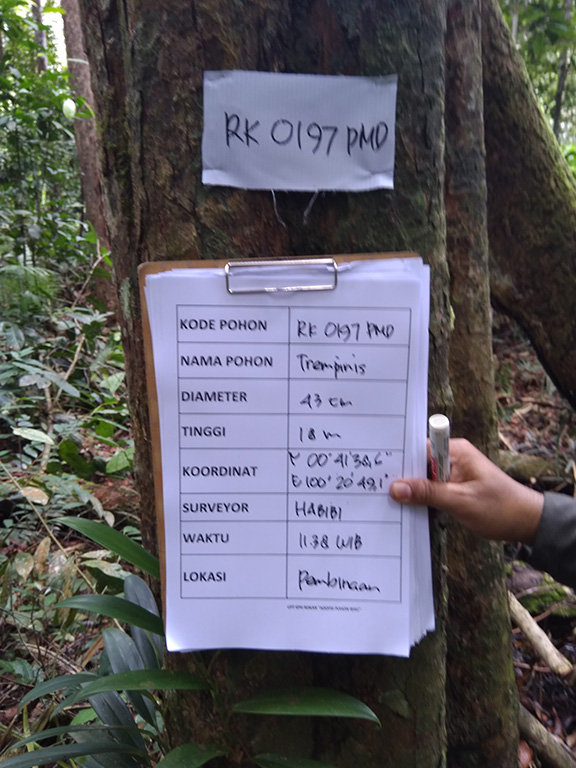 RK 0197 PMD
KODE POHON RK 0197 PMD
NAMA POHON Trempinis
DIAMETER 43 cm
TINGGI 18 m
KOORDINAT Y 00° 41' 38,6"
E 100° 20' 49,1"
SURVEYOR HABIBI
WAKTU 11.38 WIB
LOKASI Pembinaan